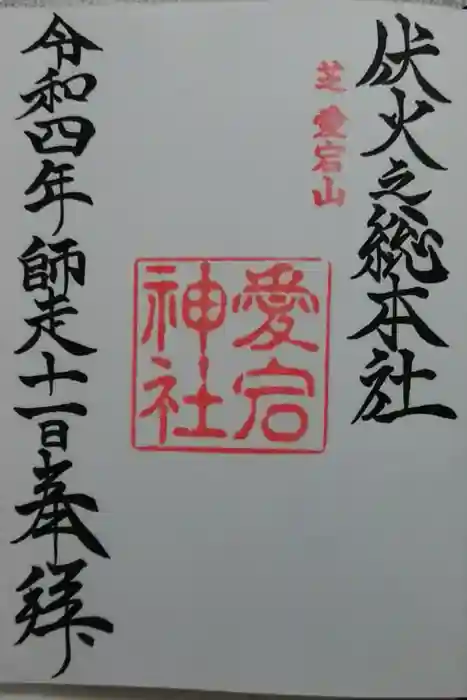 伏火之総本社
芝愛宕山
愛宕
神社
令和四年師走十一日奉拝